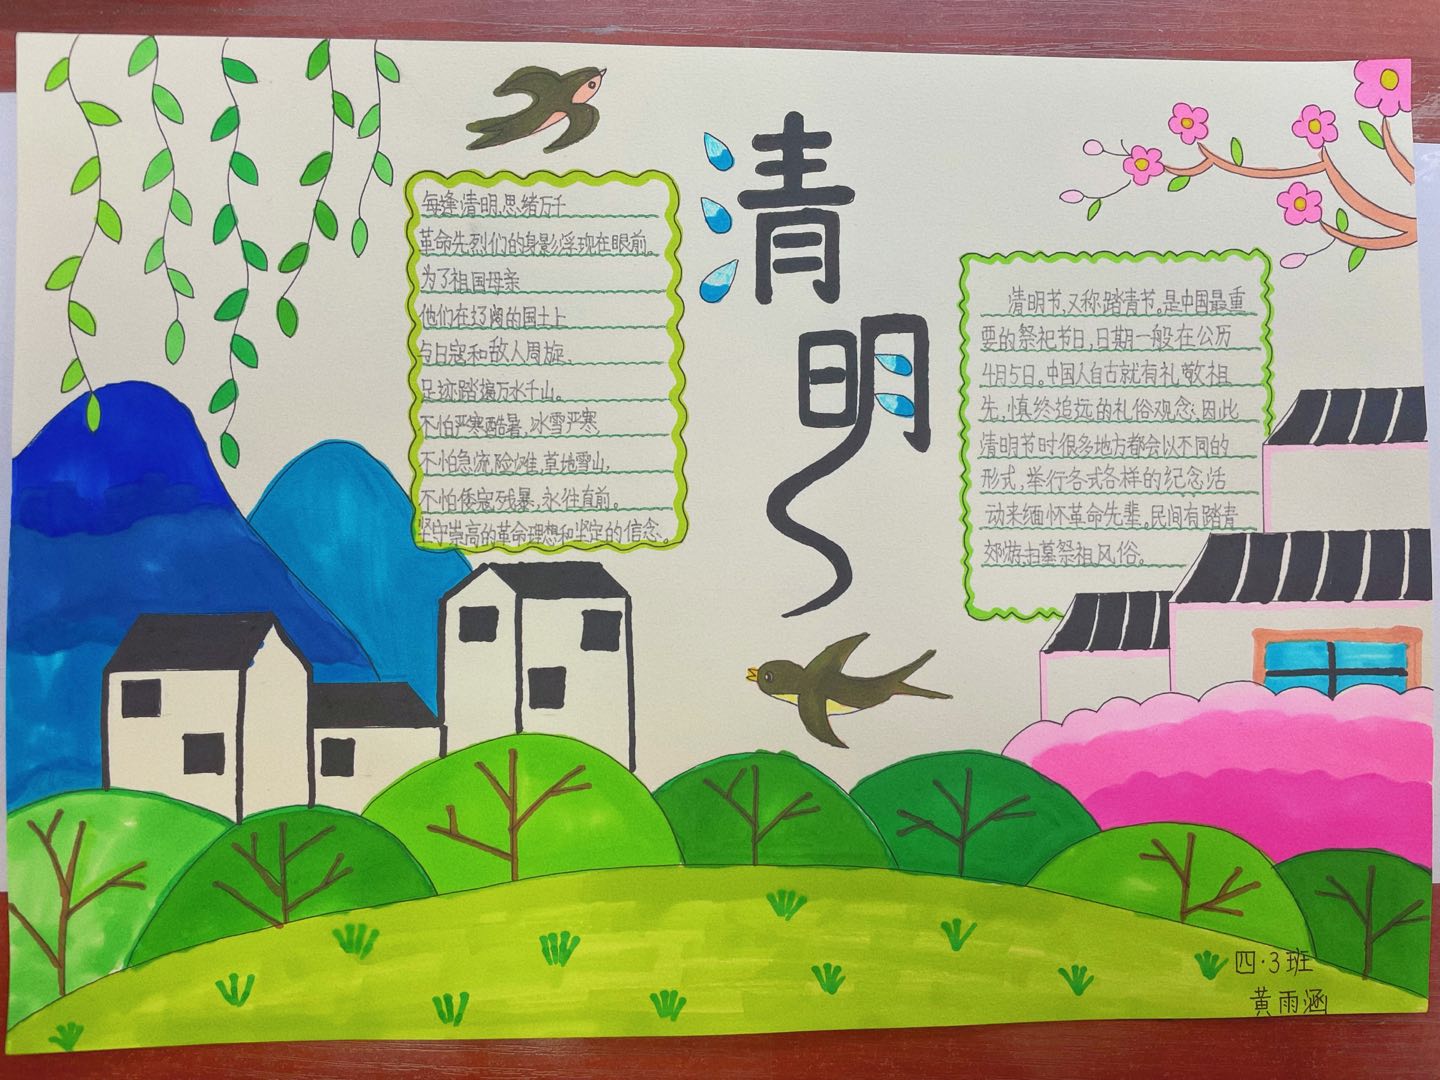 清明
每逢清明,思绪万千
革命先烈们的身影浮现在眼前。
为了祖国母亲
他们在辽阔的国土上
与日寇和敌人周旋.
足迹踏遍万水千山。
不怕严寒酷暑,冰雪严寒,
不怕急流险滩,草地雪山,
不怕倭寇残暴,永往直前。
坚守崇高的革命理想和坚定的信念。
清明节,又称踏青节。是中国最重
要的祭祀节日,日期一般在公历
4月5日。中国人自古就有礼敬祖
先,慎终追远的礼俗观念;因此
清明节时很多地方都会以不同的
形式,举行各式各样的纪念活
动来缅怀革命先辈。民间有踏青
郊游,扫墓祭祖风俗。
四·3班
黄雨涵